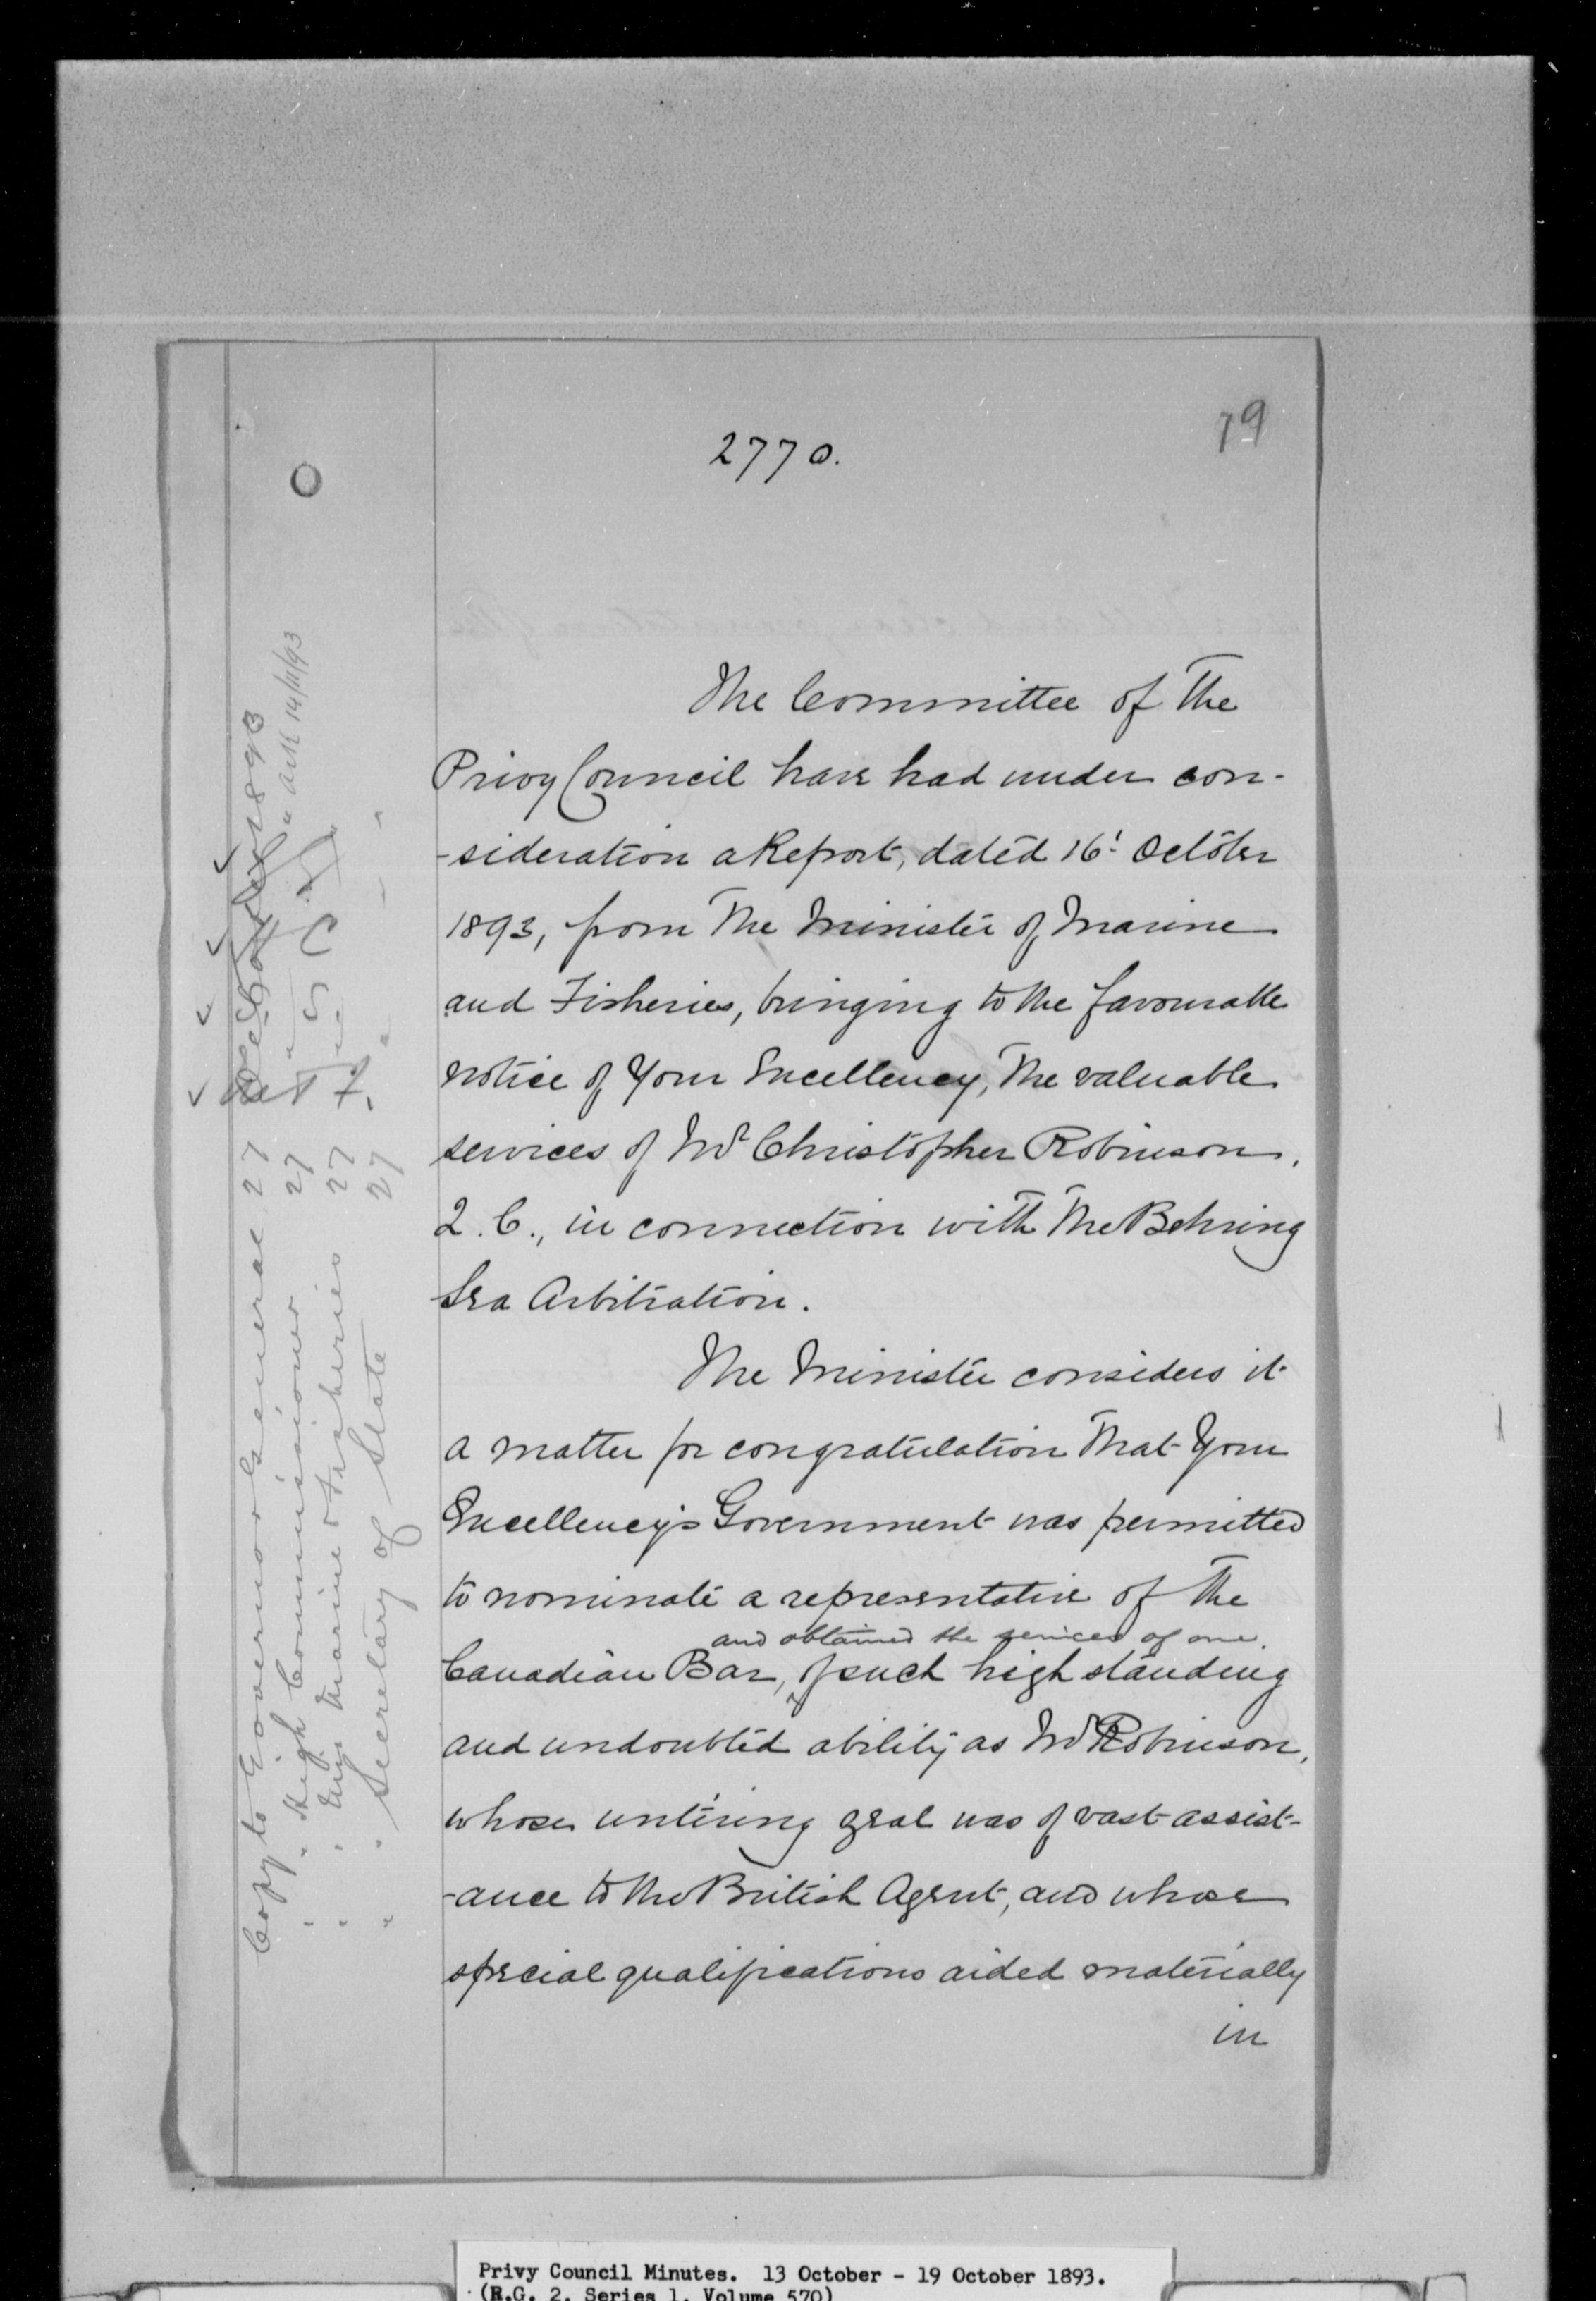 79
2770.
The Committee of the
Privy Council have had under con-
-sideration a Report, dated 16' October
1893, from the Minister of Marine
and Fisheries, bringing to the favourable
notice of Your Excellency, the valuable
services of Mr Christopher Robinson,
Q.C., in connection with the Behring
Sea Arbitration.
The Minister considers it
a matter for congratulation that Your
Excellency's Government was permitted
to nominate a representative of the
and obtained the services of one
Canadian Bar, of such high standing
and undoubted ability as Mr Robinson,
whose untiring zeal was of vast assist-
-ance to the British Agent, and whose
special qualifications aided materially
in
Copy to Governor General 27 1893
" " High Commissioner 27 14/11/93
" " Marine & Fisheries 27
" " Secretary of State 27
Privy Council Minutes. 13 October - 19 October 1893.
(R.G. 2, Series 1, Volume 570)